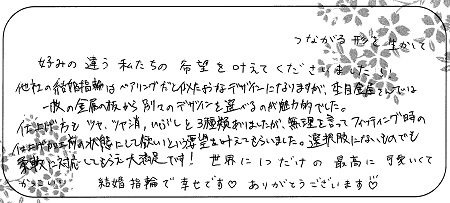 つながる形を生かして
好みの違う私たちの希望を叶えてくださいました!!
他社の結婚指輪はペアリングだと似たようなデザインになりますが、杢目金屋さんでは
一枚の金属の板から別々のデザインを選べるのが魅力的でした。
仕上げ方も ツヤ、ツヤ消、いぶしと3種類ありましたが、無理言ってフィッティング時の
仕上げ の状態にして欲しいと要望を叶えてもらいました。選択肢にないものでも
柔軟に対応してもらえ大満足です! 世界に1つだけの 最高に 可愛いくて
かっこいい 結婚指輪で幸せです♡ ありがとうございます♡